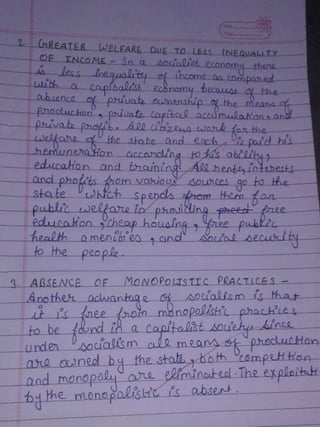 2. GREATER WELFARE DUE TO LESS INEQUALITY
OF INCOME - In a socialist economy there
is less inequality of income as compared
with a capitalist economy because of the
absence of private ownership of the means of
production, private capital accumulation, and
private profit. All citizens work for the
welfare of the state and each is paid his
remuneration according to his ability,
education and training. All rents, interests
and profits from various sources go to the
state which spends from them for
public welfare in providing free
education, cheap housing, free public
health amenities, and social security
to the people.
3. ABSENCE OF MONOPOLISTIC PRACTICES -
Another advantage of socialism is that
it is free from monopolistic practices
to be found in a capitalist society. Since
under socialism all means of production
are owned by the state, both competition
and monopoly are eliminated. The exploitati
by the monopolistic is absent.